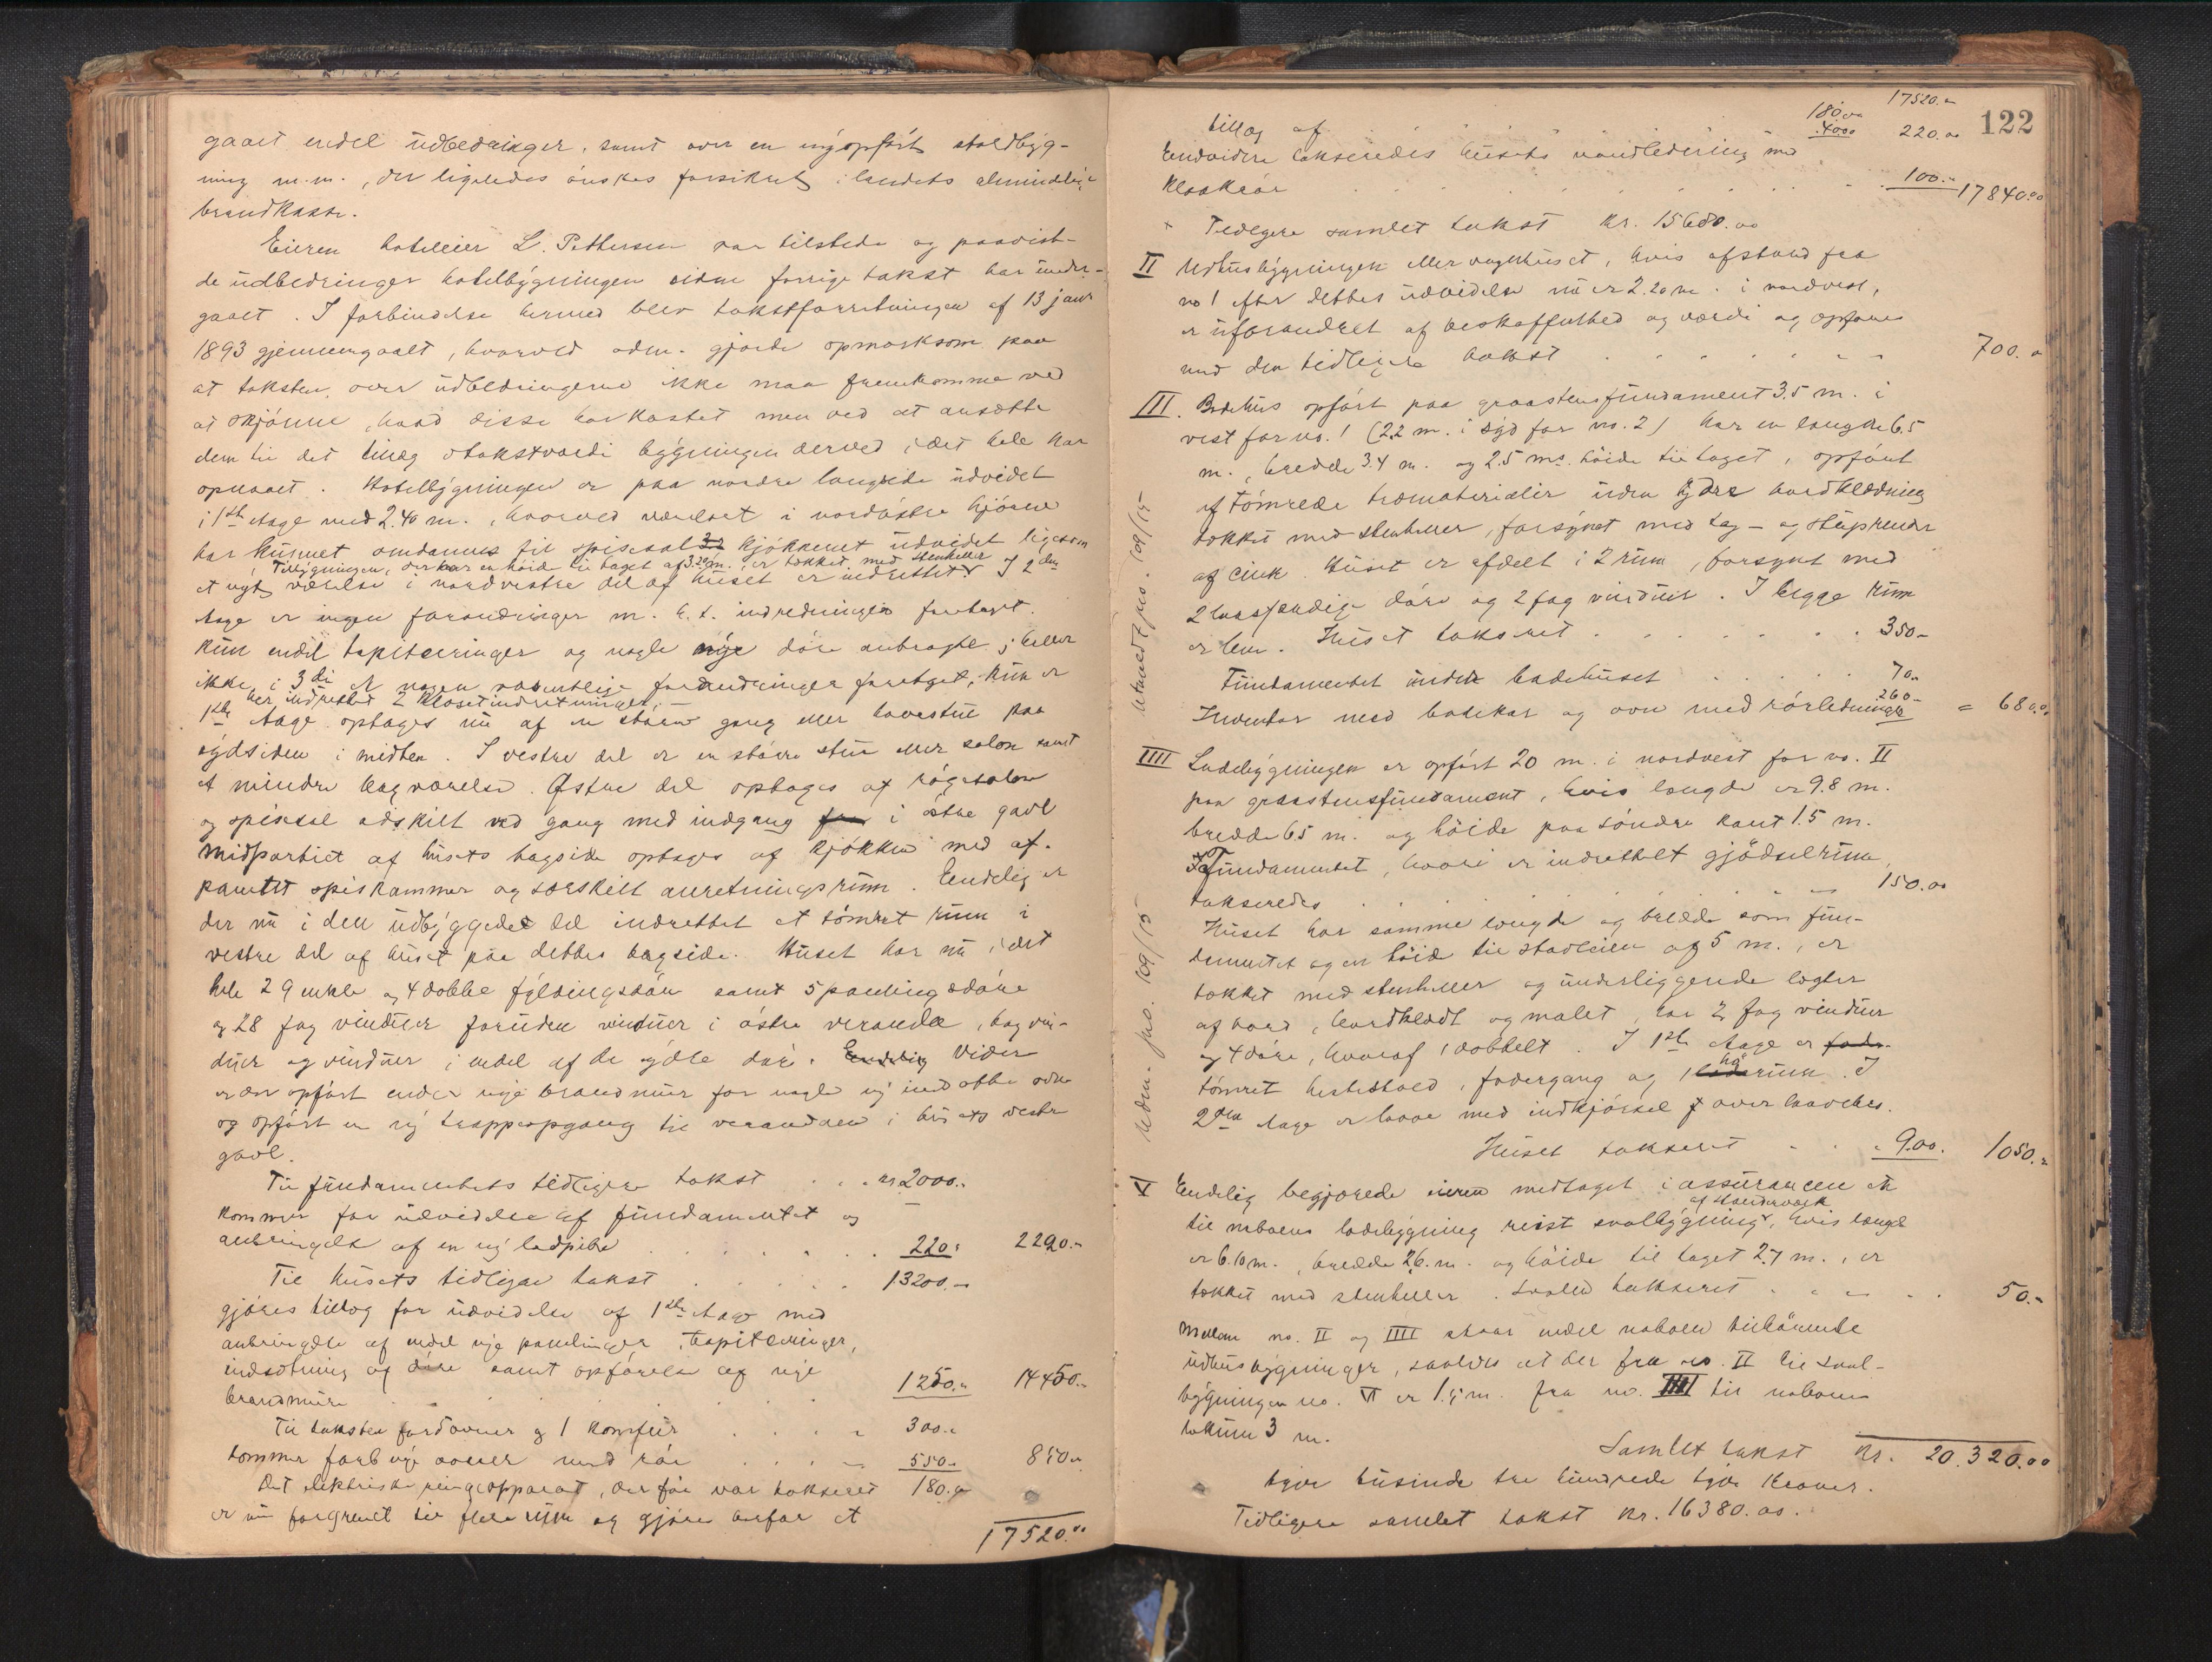 gaaet endel udbedringer, samt over en nyopført staldbyg-
ning m.m., der ligeledes ønskes forsikret i landets almindelige
brandkasse.
Eieren hoteleier L. Pettersen var tilstede og paavist-
de udbedringer hotelbygningen siden forrige takst har under-
gaaet. I forbindelse hermed blev takstforretningen af 13 janr
1893 gjennemgaaet, hvorved adm. gjorde opmerksom paa
at taksten over udbedringerne ikke maa fremkomme ved
at skjønne, hvad disse har kostet men ved at ansætte
dem til det tillæg i takstværdi bygningen derved i det hele har
opnaaet. Hotelbygningen er paa nordre langside udvidet
i 1ste etage med 2.40 m., hvorved værelset i nordøstre hjørne
har kunnet omdannes til spisesal og kjøkkenet udvidet ligesom
Tilbygningen, der har en høide til taget af 3.20 m. er tækket med stenheller
et nyt værelse i nordvestre del af huset er indrettet. I 2den
etage er ingen forandringer m. h. t. indredningen foretaget.
kun endel tapitseringer og nogle nye døre anbragte; heller
ikke i 3die er nogen væsentlige forandringer foretget, kun er
her indrettet 2 klosetindretninger. —
1ste etage optages nu af en større gang eller havestue paa
sydsiden i midten. I vestre del er en større stue eller salon samt
et mindre bagværelse. Østre del optages af røgesalon
og spisesal adskilt ved gang med indgang i østre gavl
Midtpartiet af husets bagside optages af kjøkken med af-
panelet spiskammer og særskilt anretningsrum. Endelig er
der nu i den udbyggede del indrettet et tømret rum i
vestre del af huset paa dettes bagside. Huset har nu i det
hele 29 enkle og 4 dobble fyldingsdøre samt 5 panelingsdøre
og 28 fag vinduer foruden vinduer i østre veranda, bagvin-
duer og vinduer i endel af de ydre døre. Endelig Videre
er der opført endel nye brandmure for nogle ny indsatte ovne
og opført en ny trappeopgang til verandaen i husets vestre
gavl.
Til fundamentets tidligere takst . . . kr. 2000.-
kommer for udvidelse af fundamentet og
anbringelse af en ny ladpibe . . . 220.- 2220.-
Til husets tidligere takst . . . 13200.-
gjøres tillæg for udvidelse af 1ste etage med
anbringelse af endel nye panelinger, tapitseringer,
indsætning af døre samt opførelse af nye
brandmure . . . 1250.- 14450.-
Til taksten for ovner og 1 komfur . . . 300.-
kommer for 6 nye ovner med rør . . . 550.- 850.-
Det elektriske ringeapparat, der før var takseret 180.-
er nu forgrenet til flere rum og gjøres herfor et
17520.00
122
17520.-
180.00
tillæg af . . . 40.00 220.00
Endvidere takseredes husets vandledning med
kloakrør . . . 100.- 17840.00
Tidligere samlet takst kr. 15680.00
II Udhusbygningen eller vognhuset, hvis afstand fra
no 1 efter dettes udvidelse nu er 2.20 m. i nordvest,
er uforandret af beskaffenhed og værdi og opføres
med den tidligere takst . . . 700.-
III. Badehus opført paa graastensfundament 3.5 m. i
vest for no. 1 (2.2 m. i syd for no. 2) har en længde 6.5
m., bredde 3.4 m. og 2.5 ms. høide til taget, opført
af tømrede træmaterialier uden ydre bordklædning
tækket med stenheller, forsynet med tag- og stuprender
af cink. Huset er afdelt i 2 rum, forsynt med
2 halvfandige døre og 2 fag vinduer. I begge rum
er lem. Huset takseret . . . 350.-
Fundamentet under badehuset . . . 70.-
Inventar med badekar og ovn med rørledninger 260.- = 680.00
IIII Ladebygningen er opført 20 m. i nordvest for no. II
paa graastensfundament, hvis længde er 9.8 m.
bredde 6.5 m. og høide paa søndre kant 1.5 m.
Fundamentet, hvori er indrettet gjødselrum,
takseredes . . . 150.00
Huset har samme længde og bredde som fun-
damentet og en høide til stadleien af 5 m., er
tækket med stenheller og underliggende lægter
af bord, bordklædt og malet har 2 fag vinduer
og 4 døre, hvoraf 1 dobbelt. I 1ste etage er
tømret hestestald, fodergang og 1 hørum. I
2den etage er lave med indkjørsel over laavebro.
Huset takseret . . . 900. 1050.-
V Endelig begjærede eieren medtaget i assurancen en
til naboens ladebygning reist svalbygning af standerværk, hvis længde
er 6.10 m., bredde 2.6. m. og høide til taget 2.7 m., er
tækket med stenheller. Svalen takseret . . . 50.-
Mellem no. II og IIII staar endel naboen tilhørende
udhusbygninger, saaledes at der fra no. II til sval-
bygningen no. V er 1.5 m. fra no. IIII til naboens
lokum 3 m.
Samlet takst kr. 20.320.00
tyve tusinde tre hundrede tyve Kroner.
Tidligere samlet takst kr. 16380.00.
Udm. jno. 109/15
Utmeldt jno. 109/15